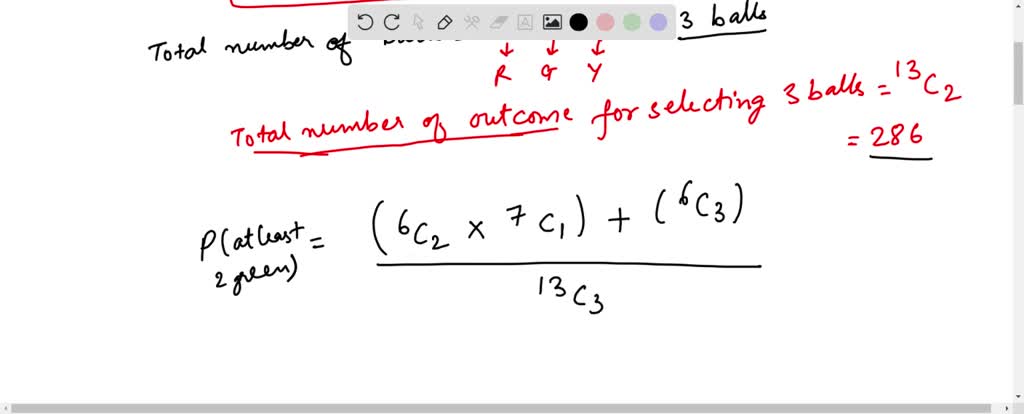 Total number of 3 balls
R G Y
Total number of outcome for selecting 3 balls = ¹³C₂
= 286
P(atleast 2 green) = (⁶C₂ × ⁷C₁) + (⁶C₃)
¹³C₃